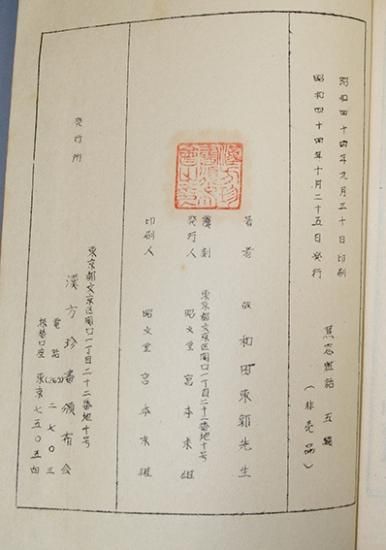 昭和四十四年九月三十日印刷
昭和四十四年十月二十五日発行
蕉窓雑話 五編
(非売品)
著者 故 和田東郭先生
東京都文京区関口一丁目二十二番地十号
復刻
発行人 昭文堂 宮本末雄
印刷人 昭文堂 宮本末雄
発行所
東京都文京区関口一丁目二十二番地十号
漢方珍書頒布会
電話 二七〇三
振替口座 東京七五〇五四